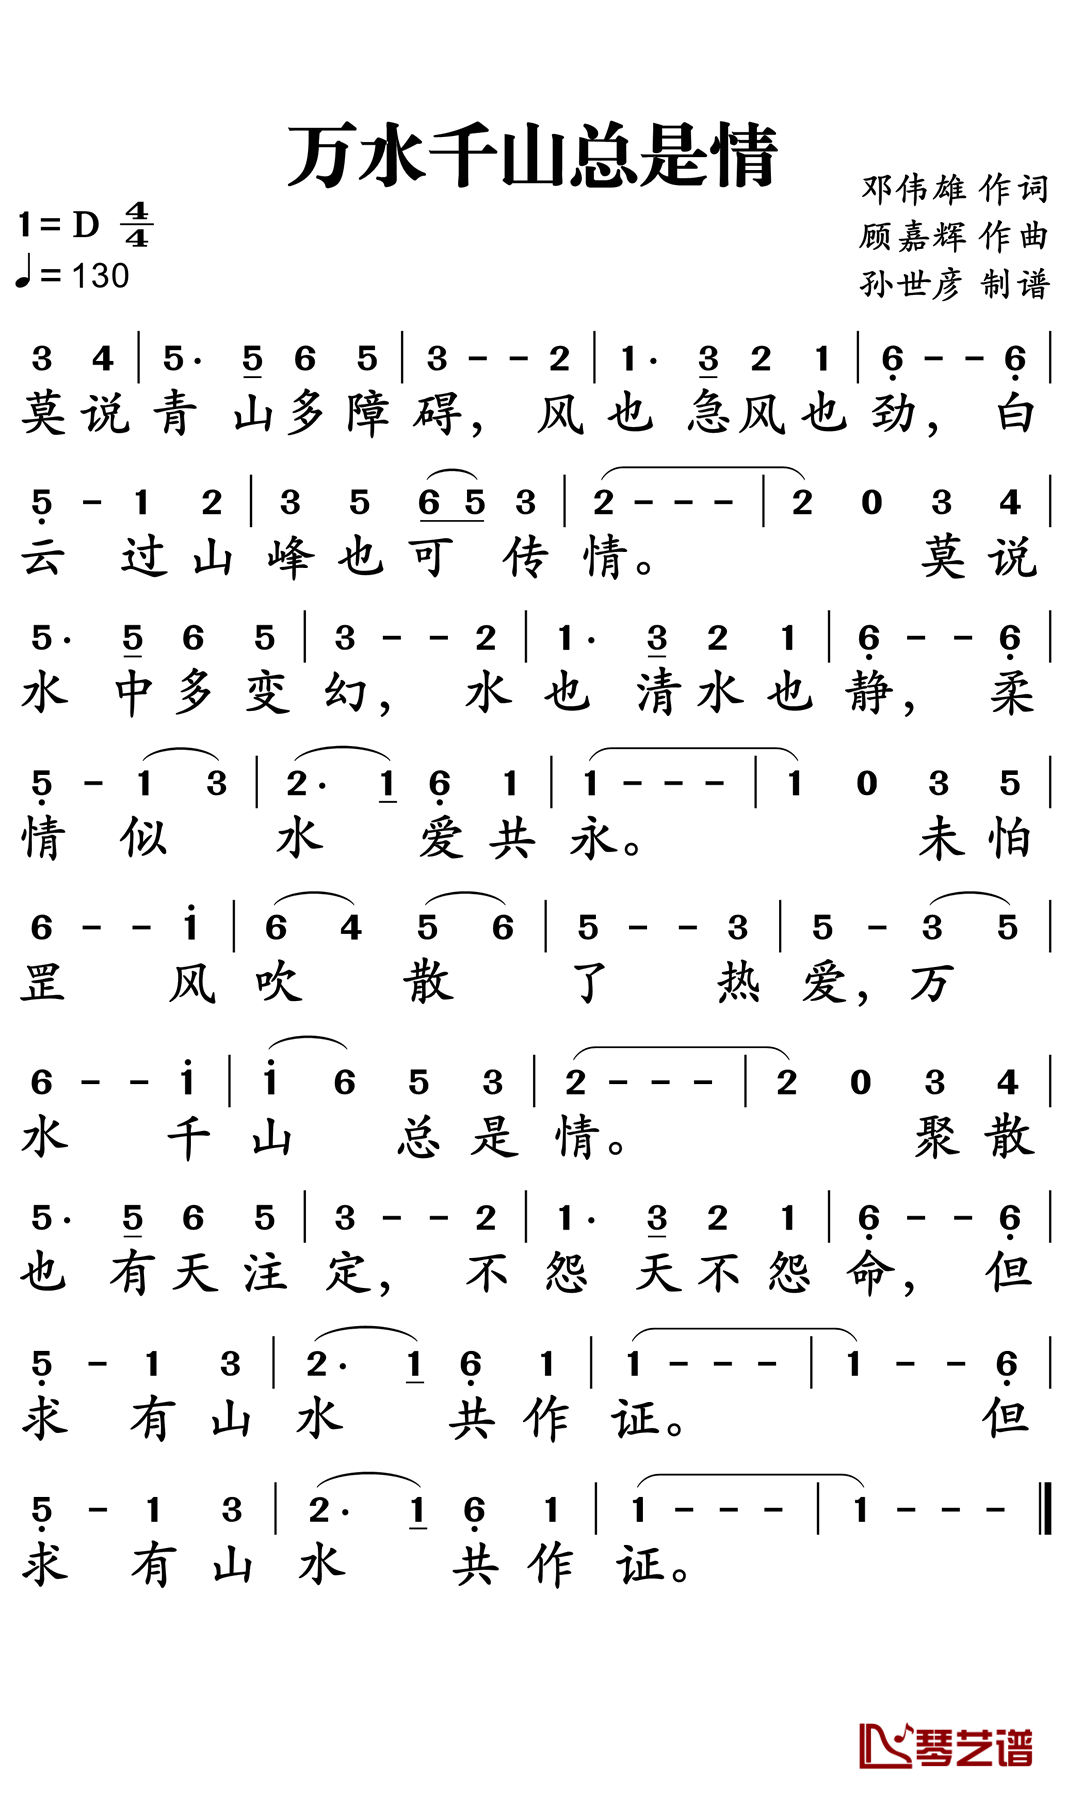 万水千山总是情
邓伟雄 作词
1= D 4/4
顾嘉辉 作曲
♩= 130
孙世彦 制谱
3 4 | 5· 5 6 5 | 3 - - 2 | 1· 3 2 1 | 6̣ - - 6̣ |
莫说青山多障碍，风也急风也劲，白
5̣ - 1 2 | 3 5 6 5 3 | 2 - - - | 2 0 3 4 |
云过山峰也可传情。莫说
5· 5 6 5 | 3 - - 2 | 1· 3 2 1 | 6̣ - - 6̣ |
水中多变幻，水也清水也静，柔
5̣ - 1 3 | 2· 1 6̣ 1 | 1 - - - | 1 0 3 5 |
情似水爱共永。未怕
6 - - 1̇ | 6 4 5 6 | 5 - - 3 | 5 - 3 5 |
罡风吹散了热爱，万
6 - - 1̇ | 1̇ 6 5 3 | 2 - - - | 2 0 3 4 |
水千山总是情。聚散
5· 5 6 5 | 3 - - 2 | 1· 3 2 1 | 6̣ - - 6̣ |
也有天注定，不怨天不怨命，但
5̣ - 1 3 | 2· 1 6̣ 1 | 1 - - - | 1 - - 6̣ |
求有山水共作证。但
5̣ - 1 3 | 2· 1 6̣ 1 | 1 - - - | 1 - - - ‖
求有山水共作证。
琴艺谱